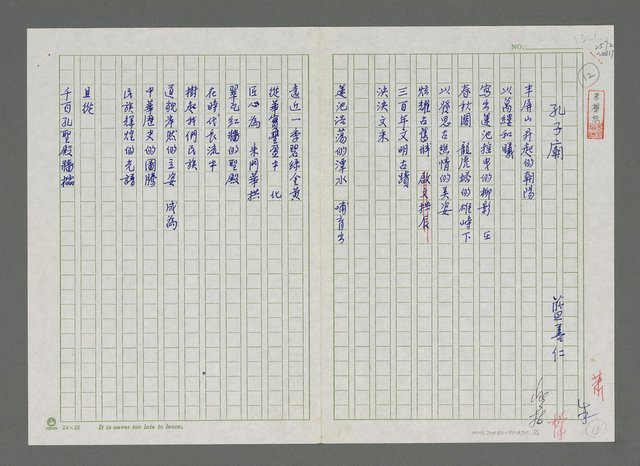 NO.
12
孔子廟
藍善仁
半屏山昇起的朝陽
以萬縷和曦
寫出蓮池搖曳的柳影 在
春秋閣 龍虎塔的雄峙下
以發思古幽情的美姿
炫耀古舊城 啟文拱辰
三百年文明古蹟
泱泱文采
蓮池浩蕩的潭水 哺育出
遠近一季碧綠金黃
從華實豐盈中 化
匠心為 朱門華拱
翠瓦紅牆的聖殿
在時代長流中
樹起我們民族
道貌岸然的立姿 成為
中華歷史的圖騰
民族輝煌的光譜
且從
千百孔聖殿牆櫺
24×25
It is never too late to learn.